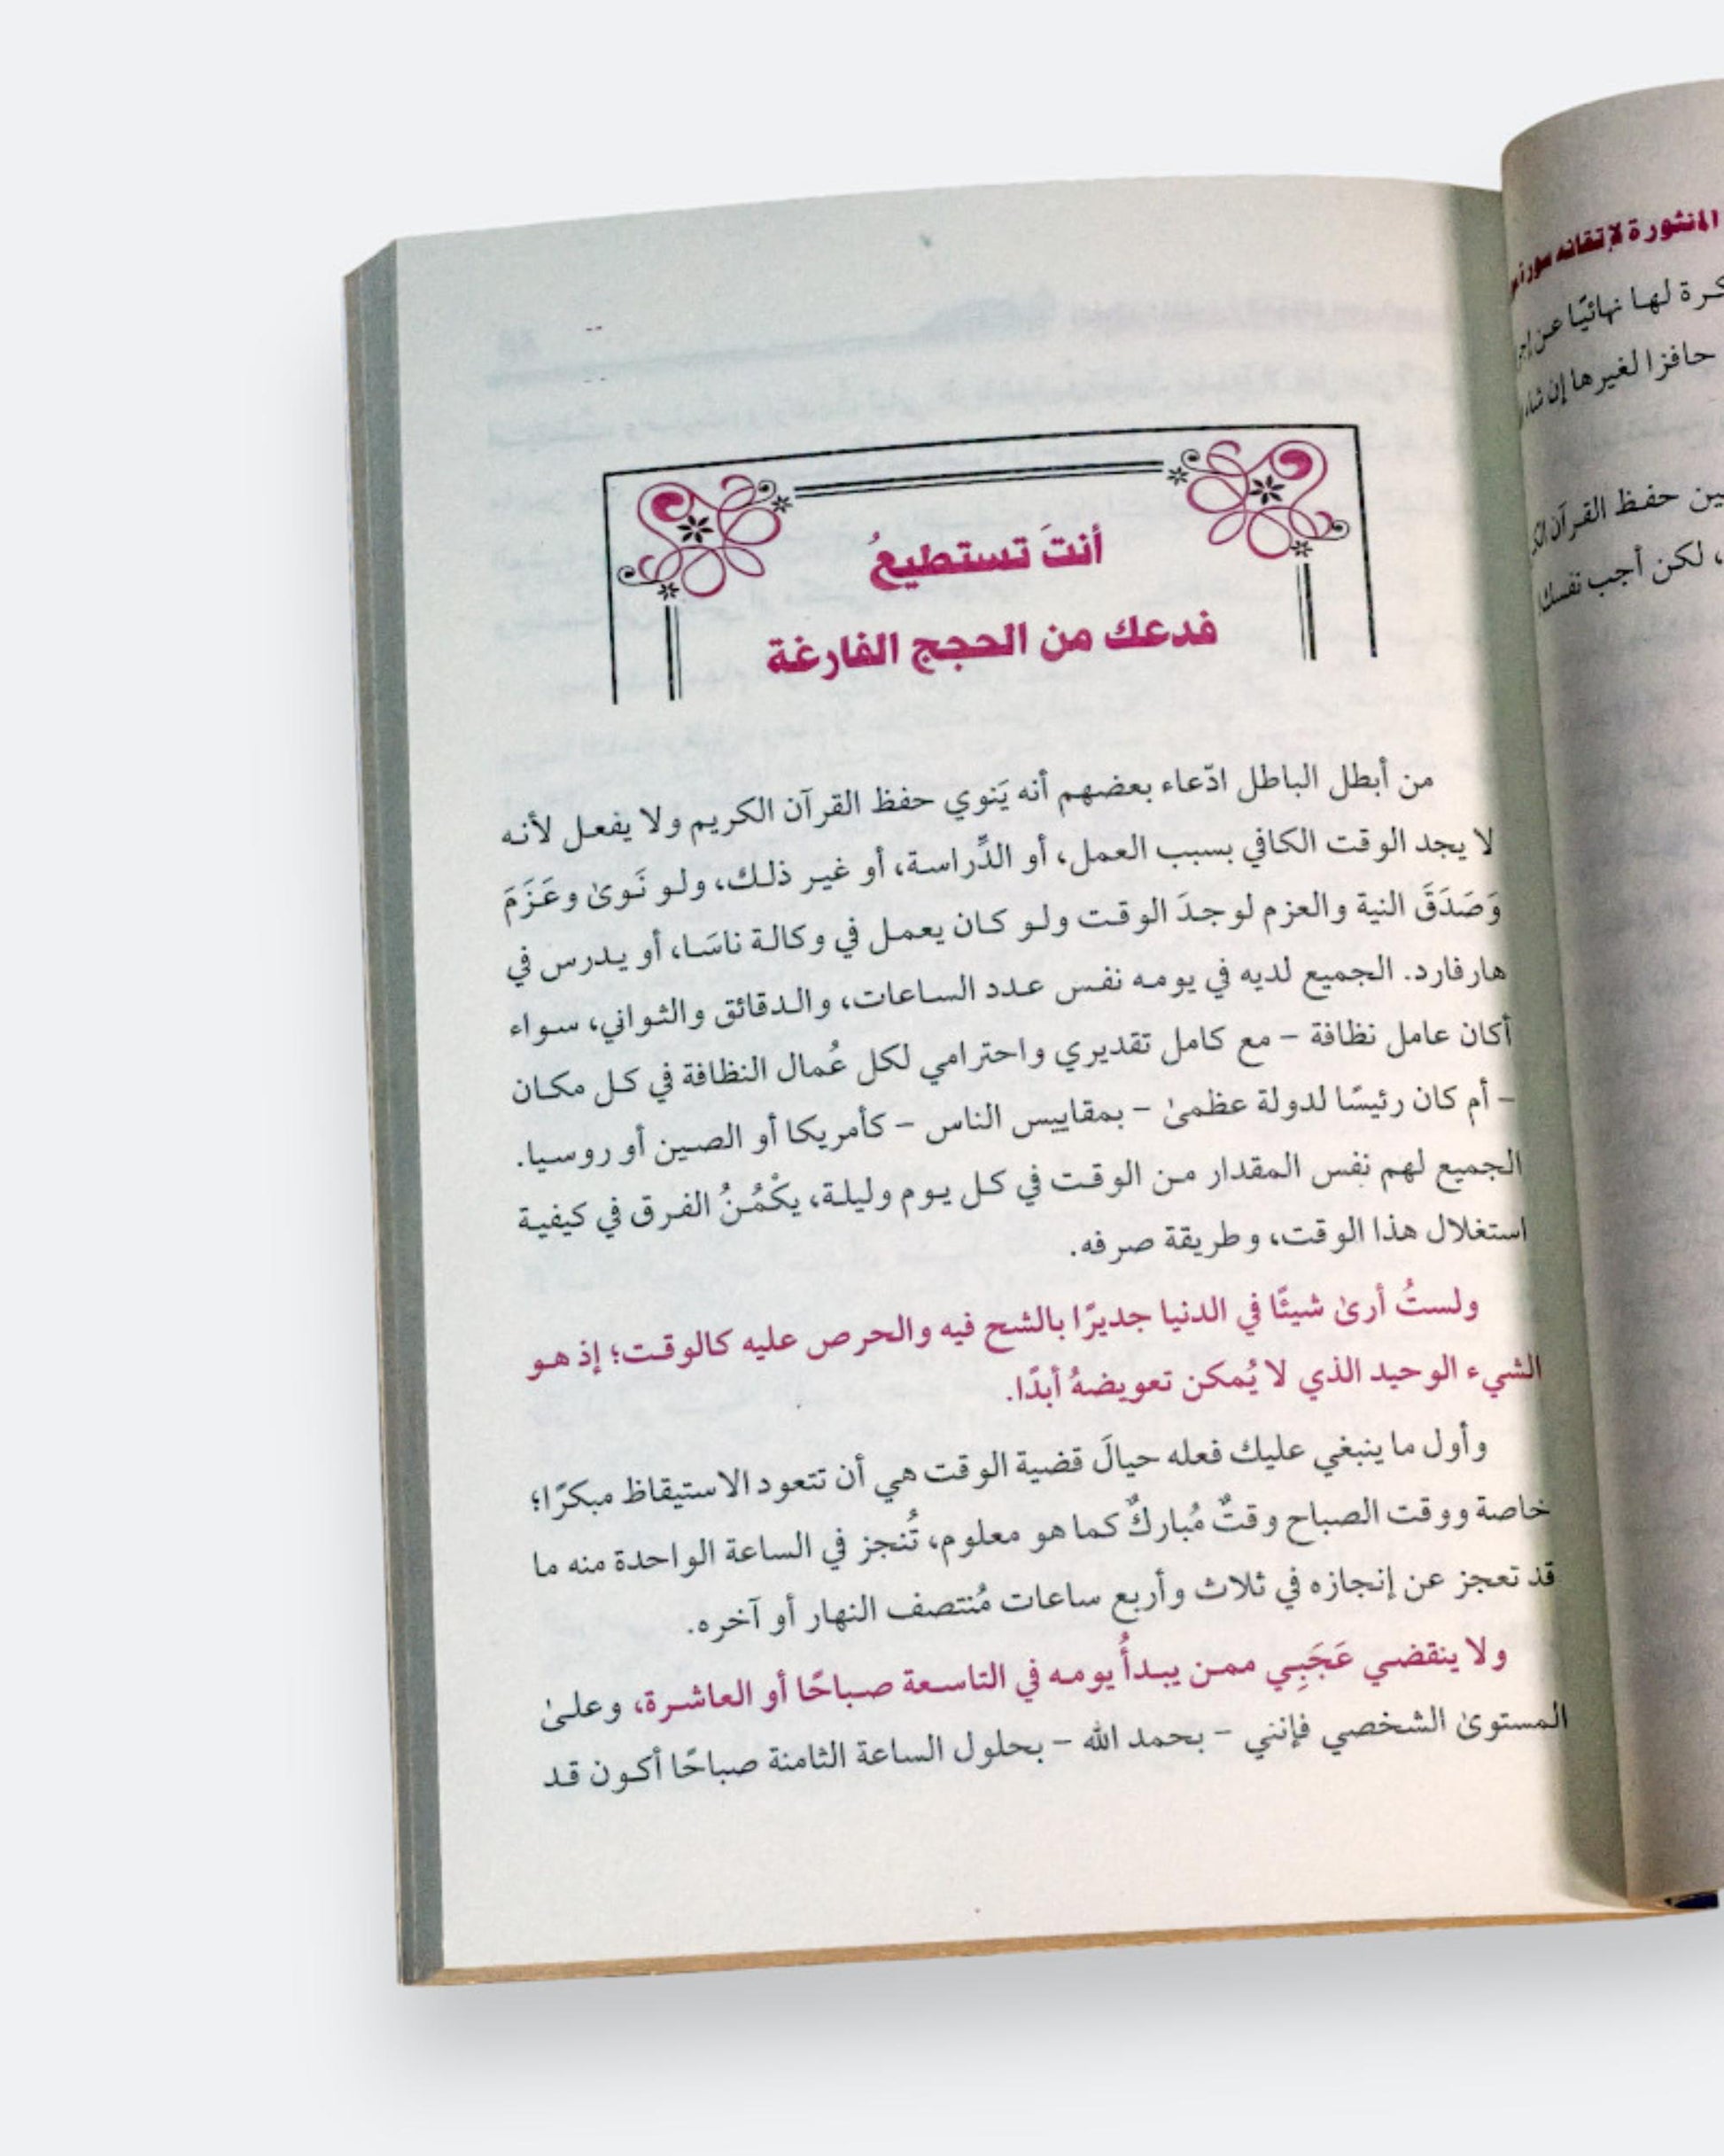 المنثورة لإتقانه سورة
كرة لها نهائيًا عن
حافزا لغيرها إن شاء
ين حفظ القرآن
، لكن أجب نفسك
أنتَ تستطيعُ
فدعك من الحجج الفارغة
من أبطل الباطل ادّعاء بعضهم أنه يَنوي حفظ القرآن الكريم ولا يفعل لأنه
لا يجد الوقت الكافي بسبب العمل، أو الدِّراسة، أو غير ذلك، ولو نَوىٰ وعَزَمَ
وَصَدَقَ النية والعزم لوجدَ الوقت ولو كان يعمل في وكالة ناسَا، أو يدرس في
هارفارد. الجميع لديه في يومه نفس عدد الساعات، والدقائق والثواني، سواء
أكان عامل نظافة – مع كامل تقديري واحترامي لكل عُمال النظافة في كل مكان
– أم كان رئيسًا لدولة عظمىٰ – بمقاييس الناس – كأمريكا أو الصين أو روسيا.
الجميع لهم نفس المقدار من الوقت في كل يوم وليلة، يكْمُنُ الفرق في كيفية
استغلال هذا الوقت، وطريقة صرفه.
ولستُ أرىٰ شيئًا في الدنيا جديرًا بالشح فيه والحرص عليه كالوقت؛ إذ هو
الشيء الوحيد الذي لا يُمكن تعويضهُ أبدًا.
وأول ما ينبغي عليك فعله حيالَ قضية الوقت هي أن تتعود الاستيقاظ مبكرًا؛
خاصة ووقت الصباح وقتٌ مُباركٌ كما هو معلوم، تُنجز في الساعة الواحدة منه ما
قد تعجز عن إنجازه في ثلاث وأربع ساعات مُنتصف النهار أو آخره.
ولا ينقضي عَجَبِي ممن يبدأُ يومه في التاسعة صباحًا أو العاشرة، وعلىٰ
المستوىٰ الشخصي فإنني – بحمد الله – بحلول الساعة الثامنة صباحًا أكون قد